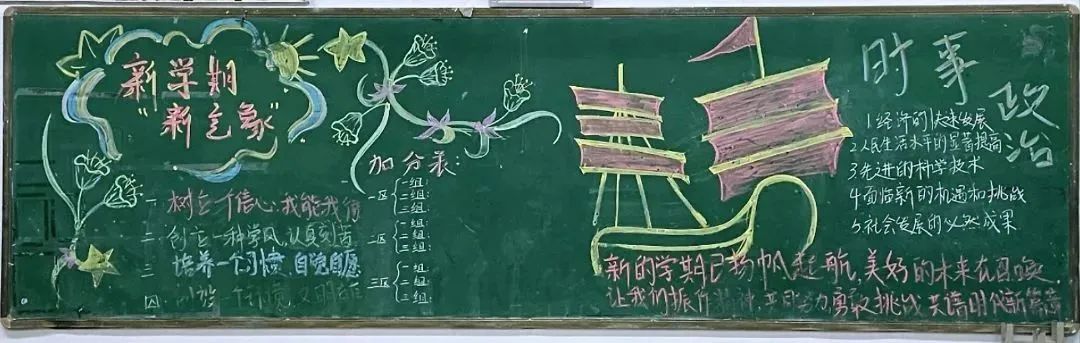 新学期
"新气象"
一 树立一个信心,我能我行
二 创立一种学风,认真刻苦
三 培养一个习惯,自觉自愿
四 一个 文明
加分录:
一区
一组:
二组:
三组:
二区
一组:
二组:
三组:
三区
一组:
二组:
三组:
时事政治
1经济的 发展
2人民生活水平的显著提高
3先进的科学技术
4面临新的机遇和挑战
5社会发展的必然成果
新的学期已扬帆起航,美好的未来在召唤
让我们振作精神,共同努力勇敢挑战共谱时代新篇章